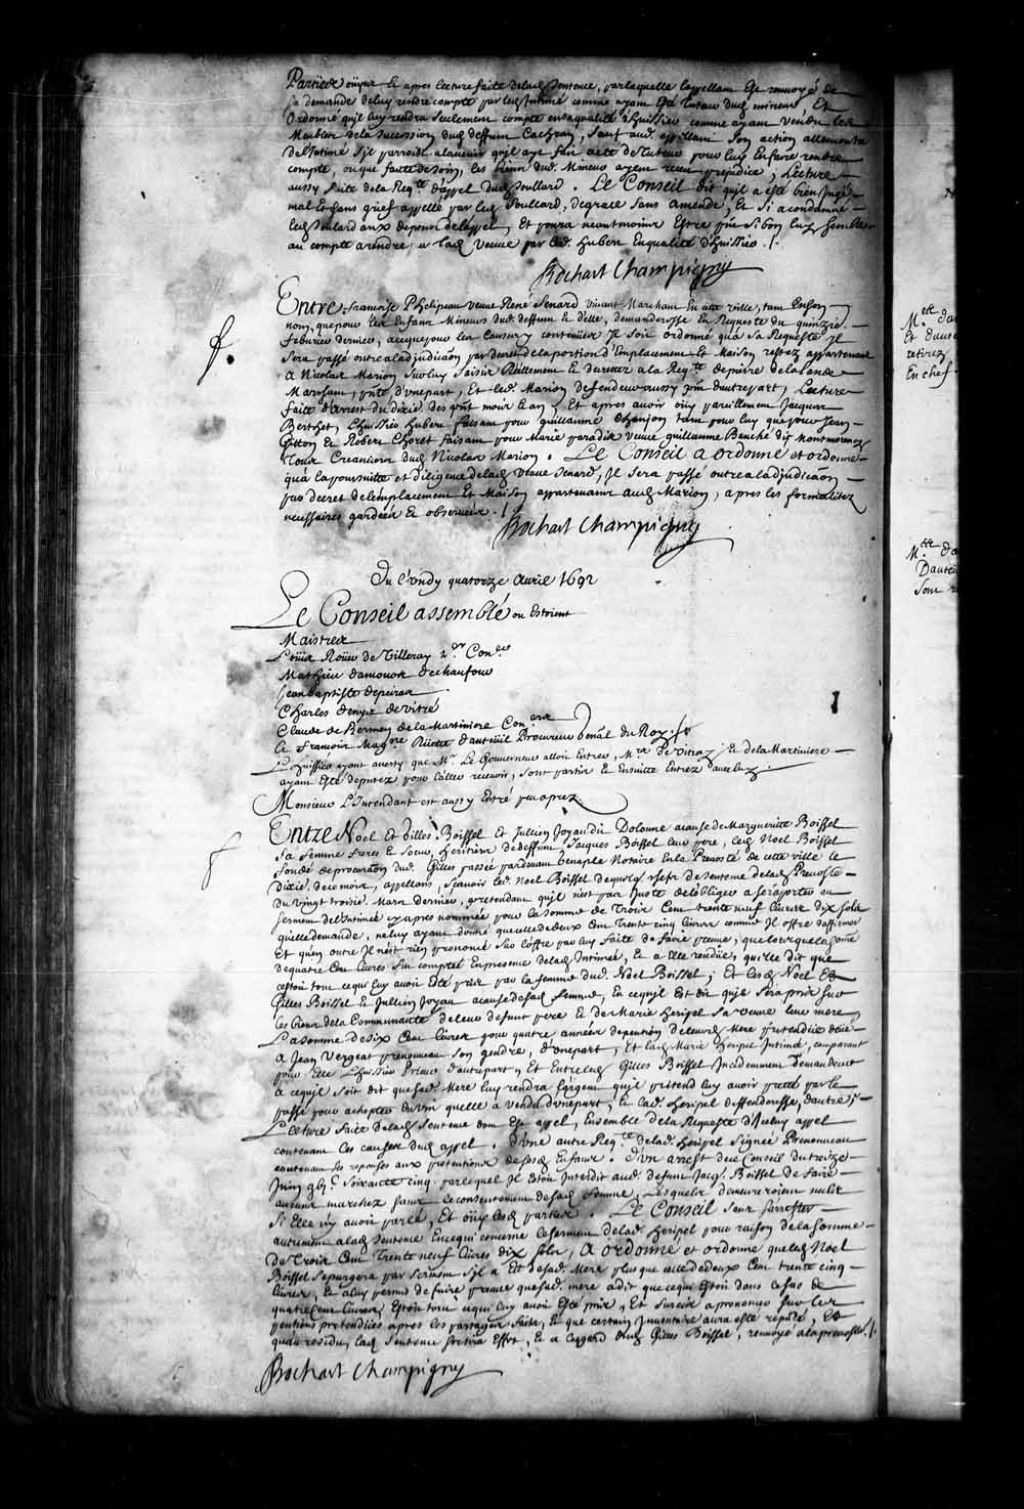 Parties ouyes Et apres lecture faite de lad. Sentence, par laquelle l'appellant Est renvoyé de
sa demande de luy rendre compte par led. Intimé comme ayant Esté tuteur dud. mineur, Et
Ordonné qu'il luy rendra seulement compte en sa qualité d'huissier comme ayant vendu les
Meubles de la succession dud. deffunt Cachran, sauf aud. appellant son action allencontre
de l'Intimé s'il paroist alavenir qu'il aye fait acte de Tuteur pour luy En faire rendre
compte, ou que faute de soin, les biens dud. Mineur ayent receu prejudice, Lecture
aussy faite de la Reqte d'appel dud. Poullard. Le Conseil dit qu'il a esté bien jugé
mal Et sans grief appellé par led. Poullard, de grace sans amende, Et si a condamné
led. Poulard aux depens de l'appel, Et poura neantmoins Estre pnt si bon luy semble
au compte a rendre a lad. Veuve par led. hubert En qualité d'huissier ./.
Bochart Champigny
Entre francoise Phelipeau veuve René Senard vivant Marchant En cette ville, tant En son
nom, que pour les Enfans Mineurs dud. deffunt Et d'elle, demanderesse En Requeste du quinzie
febvrier dernier, a ce que pour les causes y contenües Il soit ordonné qu'a sa Requeste Il
sera passé outre a la djudicaon par decret de la portion d'Emplacement Et Maison restez appartenant
A Nicolas Marion sur luy saisis Reellement Et
Marchant, pnte d'une part, Et led. Marion defendeur aussy pnt d'autre part, Lecture
faite d'arrest du dixie des pnt mois Et an, Et apres avoir ouy pareillement Jacques
Berthet, Lhuissier hubert faisant pour guillaume Chanjon tant pour luy que pour Jean
Gitton Et Robert Choret faisant pour Marie paradis veuve guillaume Bauché dit Montmorency
Tous Creanciers dud. Nicolas Marion. Le Conseil a ordonné et ordonne
qu'a la poursuitte et diligence de lad. Veuve Senard, Il sera passé outre a la djudicaon
par decret de l'emplacement Et Maison appartenans aud. Marion, apres les formalitez
necessaires gardées Et observées ./.
Bochart Champigny
Du Lundy quatorze Avril 1692
Le Conseil assemblé ou Estoient
Maistres
Loüis Roüer de Villeray 1er Coner
Mathieu damours deschaufour
Jean Baptiste depeiras
Charles denys de vitré
Claude de Bermen de la Martiniere Coners
Et francois Magdne Rüette d'auteüil Procureur general du Roy
L'huissier ayant averty que Mr Le Gouverneur alloit Entrer, Mrs de vitray Et de la Martiniere
ayant Esté deputez pour l'aller recevoir, sont partis Et Ensuitte Entrez avec luy.
Monsieur L'Intendant est aussy Entré peu apres.
Entre Noel Et Gilles Boissel Et Jullien Joyan dit Dolonne a cause de Marguerite Boissel
sa femme freres Et soeur, heritiers de deffunt Jacques Boissel leur pere, led. Noel Boissel
fondé de procuraon dud. Gilles passée pardevant Genaple Notaire En la Prevosté de cette ville le
dixie. de ce mois, appellans, scavoir led. Noel Boissel de quelq. chefs de sentence de lad. Prevosté
du vingt troisie. Mars dernier, pretendant qu'il n'est pas juste de l'obliger a se raporter au
serment de l'Intimée cy apres nommée pour la somme de Trois Cent trente neuf livres dix sols
quelle demande, ne luy ayant donné que celle de deux Cent Trente cinq livres comme Il offre d'affirmer
Et qu'en outre Il n'est rien prononcé sur l'offre par luy faite de faire preuve, que lorsque la somme
de quatre Cent livres fut comptée En presence de lad. Intimée, Et a Elle rendüe, qu'elle dit que
cestoit tout ce qui luy avoit Esté pris par la femme dud. Noel Boissel, Et lesd. Noel Et
Gilles Boissel Et Jullien Joyan a cause de sad. femme, En ce qu'il Est dit qu'il sera pris sur
les biens de la Communauté de leur defunt pere Et de Marie heripel sa veuve leur mere,
La somme de six Cent livres pour quatre années de pention de leurd. Mere pretendüe deüe
A Jean Vergeat prenouveau son gendre, d'une part, Et lad. Marie heripel Intimée, comparant
pour Elle L'huissier Prieur d'autre part, Et Entre led. Gilles Boissel Incidemment demandeur
a ce qu'il soit dit que sad. Mere luy rendra l'argent qu'il pretend luy avoir presté par le
passé pour achepter du vin quelle a vendu d'une part, Et lad. heripel deffenderesse, d'autre;
Lecture faite de lad. sentence dont Est appel, Ensemble de la Requeste d'Iceluy appel
contenant les causes dud. appel. d'une autre Reqte de lad. heripel signée Prenouveau
contenant ses reponses aux pretentions de sesd. Enfans. d'un arrest de ce Conseil du treize
Juin gbjc. soixante cinq par lequel Il Estoit Interdit aud. defunt Jacq. Boissel de faire
aucuns marchez sans le consentement de sad. femme, lesquels demeureroient nuls
si Elle n'y avoit parlé, Et oüy lesd. parties. Le Conseil sans sarrester
autrement a lad. sentence En ce qui concerne le serment de lad. heripel pour raison de la somme
de Trois Cent Trente neuf livres dix sols, a ordonné et ordonne que led. Noel
Boissel se purgera par serment s'il a Eu de sad. Mere plus que celle de deux Cent trente cinq
livres, Et a luy permis de faire preuve que sad. mere a dit que ce qui Estoit dans le sac de
quatre Cent livres Estoit tout ce qui luy avoit Esté pris, Et surcis a prononcer sur les
pentions pretendües apres les partages faits, Et que certain Inventaire aura esté
qu'au residu, lad. sentence sortira Effet, Et a l'esgard dud. Gilles Boissel, renvoyé a la prevosté ./.
Bochart Champigny